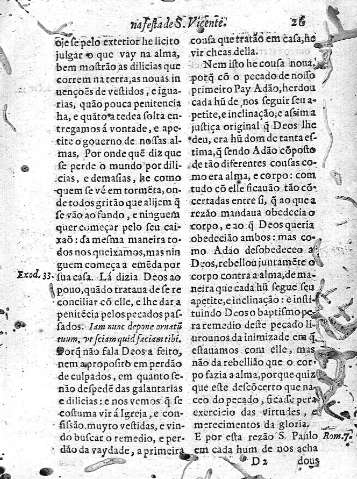 na festa de S. Vicente. 26
oje se pelo exterior he licito
julgar o que vay na alma,
bem mostrão as dilicias que
correm na terra, as nouas in
uençoẽs de vestidos, e igua-
rias, quão pouca penitencia
ha, e quãta redea solta en-
tregamos á vontade, e ape-
tite o gouerno de nossas al-
mas, Por onde quẽ diz que
se perde o mundo por dili-
cias, e demasias, he como
quem se vé em tormẽta, on-
de todos gritão que alijem q̃
se vão ao fundo, e ninguem
quer começar pelo seu cai-
xão: da mesma maneira to-
dos nos queixamos, mas nin
guem começa a emẽda por
Exod. 33. sua casa. Lá dizia Deos ao
pouo, quãdo trataua de se re
conciliar cõ elle, e lhe dar a
penitẽcia pelos pecados pas-
sados. Iam nunc depone ornatũ
tuum, vt sciam quid faciam tibi.
Porq̃ não fala Deos a feito,
nem a proposito em perdão
de culpados, em quanto se-
não despedẽ das galantarias
e dilicias: e nos vemos q̃ se
costuma vir á Igreja, e con-
fissão. muyto vestidas, e vin-
do buscar o remedio, e per-
dão da vaydade, a primeira
cousa que tratão em casa, he
vir cheas della.
Nem isto he cousa noua,
porq̃ cõ o pecado de nosso
primeiro Pay Adão, herdou
cada hũ de nos seguir seu a-
petite, e inclinação; e assim a
justiça original q̃ Deos lhe
deu, era hũ dom de tanta es-
tima, q̃ sendo Adão cõposto
de tão differentes cousas co-
mo era alma, e corpo: com
tudo cõ elle ficauão tão cõ-
certadas entre si, q̃ ao que a
rezão mandaua obedecia o
corpo, e ao q̃ Deos queria
obedecião ambos: mas co-
mo Adão desobedeceo a
Deos, rebellou juntamẽte o
corpo contra a alma, de ma-
neira que cada hũ segue seu
apetite, e inclinação: e insti-
tuindo Deos o baptismo pe-
ra remedio deste pecado li-
urounos da inimizade em q̃
estauamos com elle, mas
não da rebellião que o cor-
po fazia a alma, porque quiz
que este descõcerto que na-
ceo do pecado, ficasse pera
exercicio das virtudes, e
merecimentos da gloria.
E por esta rezão S. Paulo Rom. 7.
em cada hum de nos acha
D 2 dous